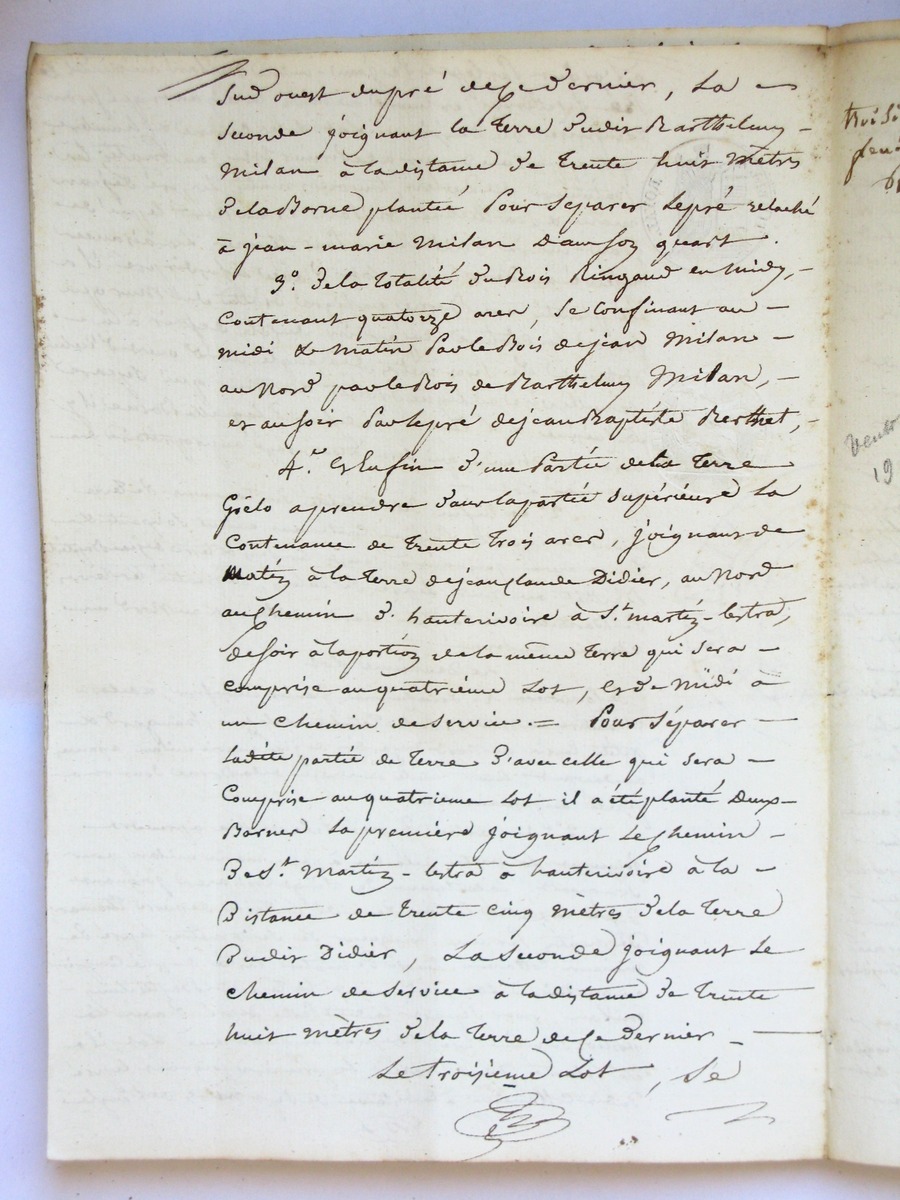 Sud ouest du pré de ce dernier, La
Seconde joignant la terre dudit Barthelmy
Milan à la distance de trente huit mètres
de la Borne plantée pour séparer le pré relaché
à jean-marie Milan dans son quart.
3.º de la totalité du Bois Ringaud en midy,
contenant quatorze ares, se confinant au
midi & matin par le Bois de jean Milan
au Nord par le Bois de Barthelmy Milan,
et au soir par le pré de jean Baptiste Berthet,
4.º Et Enfin d'une Partie de la Terre
Grélo a prendre dans la partie supérieure la
contenance de trente trois ares, joignant de
Matin à la terre de jean Claude Didier, au Nord
au Chemin d'hauterivoire à St. martin-lestra,
de soir à la portion de la même terre qui sera
comprise au quatrième Lot, Et de Midi à
un chemin de service. = Pour Séparer
ladite partie de terre d'avec celle qui sera
Comprise au quatrieme Lot il a été planté deux
Bornes la première joignant le chemin
de St. Martin-lestra à hauterivoire à la
distance de trente cinq mètres de la terre
dudit Didier, La Seconde joignant le
chemin de service à la distance de trente
huit mètres de la terre de ce dernier
Le troisième Lot, se